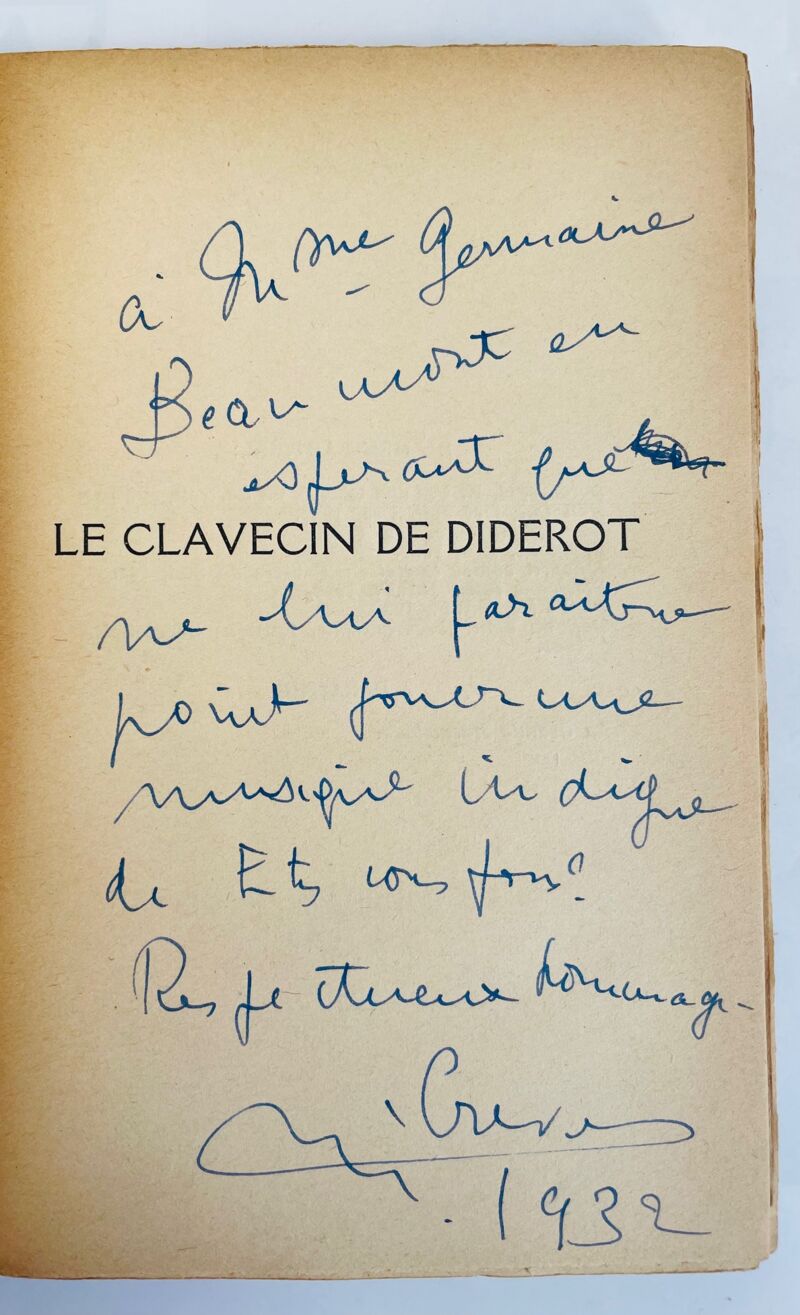 à M Mme Germaine
Beaumont en
esperant que
LE CLAVECIN DE DIDEROT
ne lui paraitra
point jouer une
musique indigne
de Etes vous fous?
Respectueux hommage
Crevel
1932